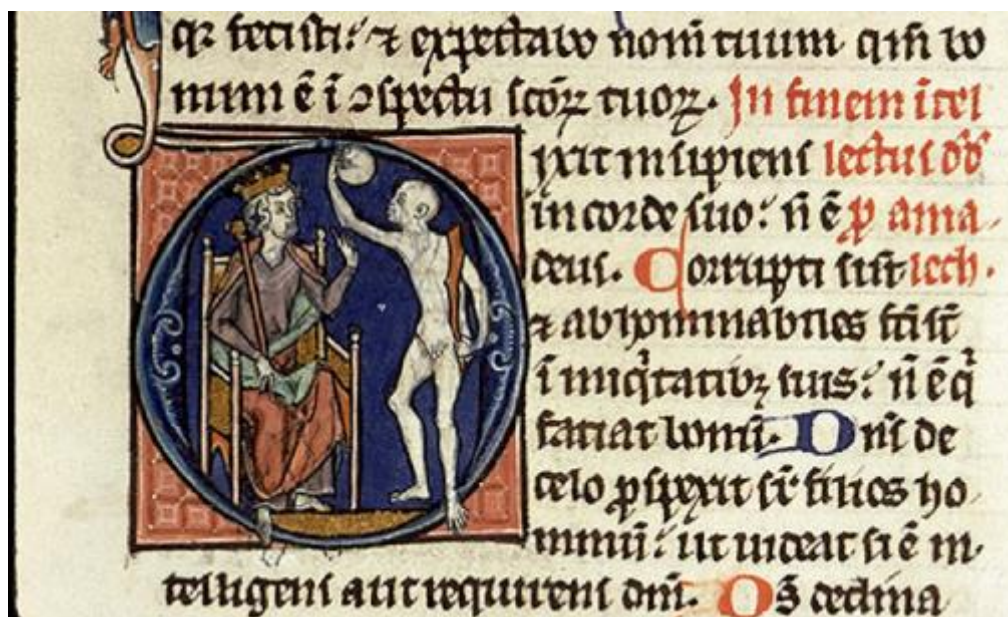 qr fecisti: ⁊ expectabo nom̄ tuum qm̄ bo
num ē ī ↄspectu scōꝝ tuoꝝ. In finem ītel
ixit insipiens lectus dd̄
in corde suo: n̄ ē ꝓ ama
deus. Corrupti sūt lech.
⁊ abhominabiles fc̄i sūt
ī iniq̇tatibꝫ suis: n̄ ē q̇
faciat bonū. Dn̄s de
celo ꝓspexit sr̄ filios ho
minū: ut uideat si ē in
telligens aut requirens dm̄. Os̄ declina